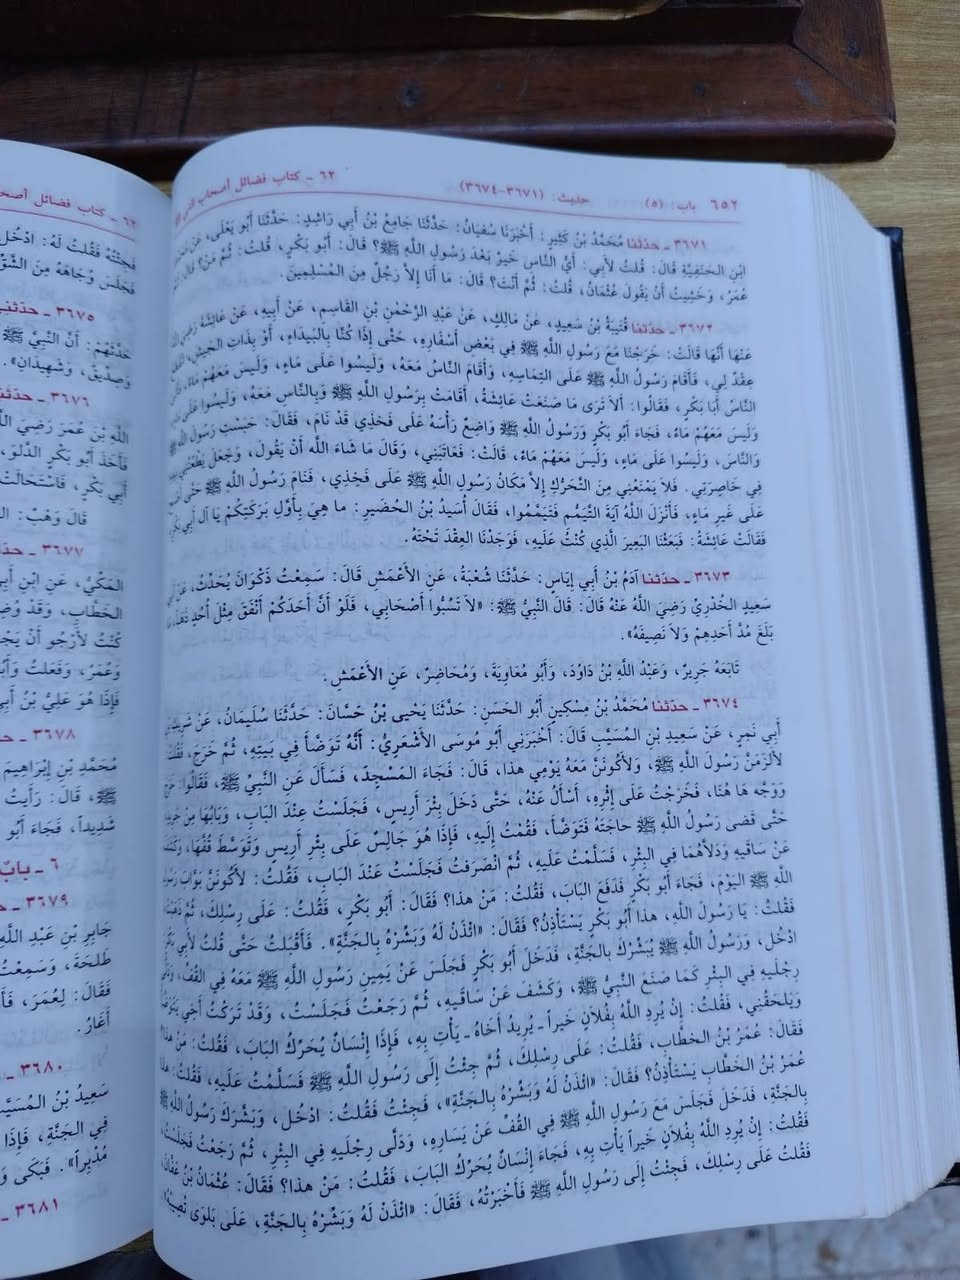 ٦٥٢ باب: (٥) حديث: (٣٦٧١-٣٦٧٤) ٦٢ - كتاب فضائل أصحاب النبي
٣٦٧١ - حدثنا مُحَمَّدُ بْنُ كَثِيرٍ: أَخْبَرَنَا سُفيَانُ: حَدَّثَنَا جَامِعُ بْنُ أَبِي رَاشِدٍ: حَدَّثَنَا أَبُو يَعْلَى، عَنْ
ابْنِ الحَنَفِيَّةِ قَالَ: قُلتُ لأَبِي: أَيُّ النَّاسِ خَيرٌ بَعْدَ رَسُولِ اللَّهِ ﷺ؟ قَالَ: أَبُو بَكْرٍ، قُلتُ: ثُمَّ مَنْ؟ قَالَ:
عُمَرُ، وَخَشِيتُ أَنْ يَقُولَ عُثْمَانُ، قُلتُ: ثُمَّ أَنْتَ؟ قَالَ: مَا أَنَا إِلاَّ رَجُلٌ مِنَ المُسْلِمِينَ.
٣٦٧٢ - حدثنا قُتَيبَةُ بْنُ سَعِيدٍ، عَنْ مَالِكٍ، عَنْ عَبْدِ الرَّحْمٰنِ بْنِ القَاسِمِ، عَنْ أَبِيهِ، عَنْ عَائِشَةَ رَضِيَ
عَنْهَا أَنَّهَا قَالَتْ: خَرَجْنَا مَعَ رَسُولِ اللَّهِ ﷺ فِي بَعْضِ أَسْفَارِهِ، حَتَّى إِذَا كُنَّا بِالبَيدَاءِ، أَوْ بِذَاتِ الجَيشِ،
عِقْدٌ لِي، فَأَقَامَ رَسُولُ اللَّهِ ﷺ عَلَى التِمَاسِهِ، وَأَقَامَ النَّاسُ مَعَهُ، وَلَيسُوا عَلَى مَاءٍ، وَلَيسَ مَعَهُمْ مَاءٌ،
النَّاسُ أَبَا بَكْرٍ، فَقَالُوا: أَلاَ تَرَى مَا صَنَعَتْ عَائِشَةُ، أَقَامَتْ بِرَسُولِ اللَّهِ ﷺ وَبِالنَّاسِ مَعَهُ، وَلَيسُوا عَلَى
وَلَيسَ مَعَهُمْ مَاءٌ، فَجَاءَ أَبُو بَكْرٍ وَرَسُولُ اللَّهِ ﷺ وَاضِعٌ رَأْسَهُ عَلَى فَخِذِي قَدْ نَامَ، فَقَالَ: حَبَسْتِ رَسُولَ
وَالنَّاسَ، وَلَيسُوا عَلَى مَاءٍ، وَلَيسَ مَعَهُمْ مَاءٌ، قَالَتْ: فَعَاتَبَنِي، وَقَالَ مَا شَاءَ اللَّه أَنْ يَقُولَ، وَجَعَلَ يَطْعُنُنِي
فِي خَاصِرَتِي، فَلاَ يَمْنَعُنِي مِنَ التَّحَرُّكِ إِلاَّ مَكَانُ رَسُولِ اللَّهِ ﷺ عَلَى فَخِذِي، فَنَامَ رَسُولُ اللَّهِ ﷺ حَتَّى
عَلَى غَيرِ مَاءٍ، فَأَنْزَلَ اللَّهُ آيَةَ التَّيَمُّمِ فَتَيَمَّمُوا، فَقَالَ أُسَيدُ بْنُ الحُضَيرِ: مَا هِيَ بِأَوَّلِ بَرَكَتِكُمْ يَا آلَ أَبِي بَكْرٍ
فَقَالَتْ عَائِشَةُ: فَبَعَثْنَا البَعِيرَ الَّذِي كُنْتُ عَلَيهِ، فَوَجَدْنَا العِقْدَ تَحْتَهُ.
٣٦٧٣ - حدثنا آدَمُ بْنُ أَبِي إِيَاسٍ: حَدَّثَنَا شُعْبَةُ، عَنِ الأَعْمَشِ قَالَ: سَمِعْتُ ذَكْوَانَ يُحَدِّثُ، عَنْ
سَعِيدٍ الخُدْرِيِّ رَضِيَ اللَّهُ عَنْهُ قَالَ: قَالَ النَّبِيُّ ﷺ: «لاَ تَسُبُّوا أَصْحَابِي، فَلَوْ أَنَّ أَحَدَكُمْ أَنْفَقَ مِثْلَ أُحُدٍ ذَهَباً،
بَلَغَ مُدَّ أَحَدِهِمْ وَلاَ نَصِيفَهُ».
تَابَعَهُ جَرِيرٌ، وَعَبْدُ اللَّهِ بْنُ دَاوُدَ، وَأَبُو مُعَاوِيَةَ، وَمُحَاضِرٌ، عَنِ الأَعْمَشِ.
٣٦٧٤ - حدثنا مُحَمَّدُ بْنُ مِسْكِينٍ أَبُو الحَسَنِ: حَدَّثَنَا يَحْيى بْنُ حَسَّانَ: حَدَّثَنَا سُلَيمَانُ، عَنْ شَرِيكِ
أَبِي نَمِرٍ، عَنْ سَعِيدِ بْنِ المُسَيَّبِ قَالَ: أَخْبَرَنِي أَبُو مُوسَى الأَشْعَرِيُّ: أَنَّهُ تَوَضَّأَ فِي بَيتِهِ، ثُمَّ خَرَجَ، فَقُلتُ
لأَلزَمَنَّ رَسُولَ اللَّهِ ﷺ، وَلأَكُونَنَّ مَعَهُ يَوْمِي هذا، قَالَ: فَجَاءَ المَسْجِدَ، فَسَأَلَ عَنِ النَّبِيِّ ﷺ، فَقَالُوا: خَرَجَ
وَوَجَّهَ هَا هُنَا، فَخَرَجْتُ عَلَى إِثْرِهِ، أَسْأَلُ عَنْهُ، حَتَّى دَخَلَ بِئْرَ أَرِيسٍ، فَجَلَسْتُ عِنْدَ البَابِ، وَبَابُهَا مِنْ
حَتَّى قَضَى رَسُولُ اللَّهِ ﷺ حَاجَتَهُ فَتَوَضَّأَ، فَقُمْتُ إِلَيهِ، فَإِذَا هُوَ جَالِسٌ عَلَى بِئْرِ أَرِيسٍ وَتَوَسَّطَ قُفَّهَا،
عَنْ سَاقَيهِ وَدَلاَّهُمَا فِي البِئْرِ، فَسَلَّمْتُ عَلَيهِ، ثُمَّ انْصَرَفتُ فَجَلَسْتُ عِنْدَ البَابِ، فَقُلتُ: لأَكُونَنَّ بَوَّابَ
اللَّهِ ﷺ اليَوْمَ، فَجَاءَ أَبُو بَكْرٍ فَدَفَعَ البَابَ، فَقُلتُ: مَنْ هذا؟ فَقَالَ: أَبُو بَكْرٍ، فَقُلتُ: عَلَى رِسْلِكَ، ثُمَّ ذَهَبْتُ
فَقُلتُ: يَا رَسُولَ اللَّهِ، هذا أَبُو بَكْرٍ يَسْتَأْذِنُ؟ فَقَالَ: «ائْذَنْ لَهُ وَبَشِّرْهُ بِالجَنَّةِ». فَأَقْبَلتُ حَتَّى قُلتُ لأَبِي
ادْخُل، وَرَسُولُ اللَّهِ ﷺ يُبَشِّرُكَ بِالجَنَّةِ، فَدَخَلَ أَبُو بَكْرٍ فَجَلَسَ عَنْ يَمِينِ رَسُولِ اللَّهِ ﷺ مَعَهُ فِي القُفِّ،
رِجْلَيهِ فِي البِئْرِ كَمَا صَنَعَ النَّبِيُّ ﷺ، وَكَشَفَ عَنْ سَاقَيهِ، ثُمَّ رَجَعْتُ فَجَلَسْتُ، وَقَدْ تَرَكْتُ أَخِي يَتَوَضَّأُ
وَيَلحَقُنِي، فَقُلتُ: إِنْ يُرِدِ اللَّهُ بِفُلاَنٍ خَيراً - يُرِيدُ أَخَاهُ - يَأْتِ بِهِ، فَإِذَا إِنْسَانٌ يُحَرِّكُ البَابَ، فَقُلتُ: مَنْ هذا؟
فَقَالَ: عُمَرُ بْنُ الخطَّابِ، فَقُلتُ: عَلَى رِسْلِكَ، ثُمَّ جِئْتُ إِلَى رَسُولِ اللَّهِ ﷺ فَسَلَّمْتُ عَلَيهِ، فَقُلتُ: هذا
عُمَرُ بْنُ الخَطَّابِ يَسْتَأْذِنُ؟ فَقَالَ: «ائْذَنْ لَهُ وَبَشِّرْهُ بِالجَنَّةِ»، فَجِئْتُ فَقُلتُ: ادْخُل، وَبَشَّرَكَ رَسُولُ اللَّهِ
بِالجَنَّةِ، فَدَخَلَ فَجَلَسَ مَعَ رَسُولِ اللَّهِ ﷺ فِي القُفِّ عَنْ يَسَارِهِ، وَدَلَّى رِجْلَيهِ فِي البِئْرِ، ثُمَّ رَجَعْتُ فَجَلَسْتُ
فَقُلتُ: إِنْ يُرِدِ اللَّهُ بِفُلاَنٍ خَيراً يَأْتِ بِهِ، فَجَاءَ إِنْسَانٌ يُحَرِّكُ البَابَ، فَقُلتُ: مَنْ هذا؟ فَقَالَ: عُثْمَانُ بْنُ عَفَّانَ
فَقُلتُ عَلَى رِسْلِكَ، فَجِئْتُ إِلَى رَسُولِ اللَّهِ ﷺ فَأَخْبَرْتُهُ، فَقَالَ: «ائْذَنْ لَهُ وَبَشِّرْهُ بِالجَنَّةِ، عَلَى بَلوَى تُصِيبُهُ
٦٢ - كتاب فضائل
فَجِئْتُهُ فَقُلتُ لَهُ: ادْخُل
فَجَلَسَ وُجَاهَهُ مِنَ الشِّقِّ
٣٦٧٥ - حدثني
حَدَّثَهُمْ: أَنَّ النَّبِيَّ ﷺ
وَصِدِّيقٌ، وَشَهِيدَانِ».
٣٦٧٦ - حدثنا
اللَّهِ بْنَ عُمَرَ رَضِيَ
فَأَخَذَ أَبُو بَكْرٍ الدَّلوَ،
أَبِي بَكْرٍ، فَاسْتَحَالَتْ
قَالَ وَهْبٌ:
٣٦٧٧ -
المَكِّيُّ، عَنِ ابْنِ
الخَطَّابِ، وَقَدْ
كُنْتُ لأَرْجُو أَنْ
وَعُمَرُ، وَفَعَلتُ
فَإِذَا هُوَ عَلِيُّ بْنُ
٣٦٧٨ -
مُحَمَّدِ بْنِ إِبْرَاهِيمَ
ﷺ، قَالَ: رَأَيتُ
شَدِيداً، فَجَاءَ أَبُو
٦ - باب
٣٦٧٩ -
جَابِرِ بْنِ عَبْدِ اللَّهِ
طَلحَةَ، وَسَمِعْتُ
فَقَالَ: لِعُمَرَ،
أَغَارُ.
٣٦٨٠ -
سَعِيدُ بْنُ المُسَيَّبِ
فِي الجَنَّةِ، فَإِذَا
مُدْبِراً». فَبَكَى
٣٦٨١ -